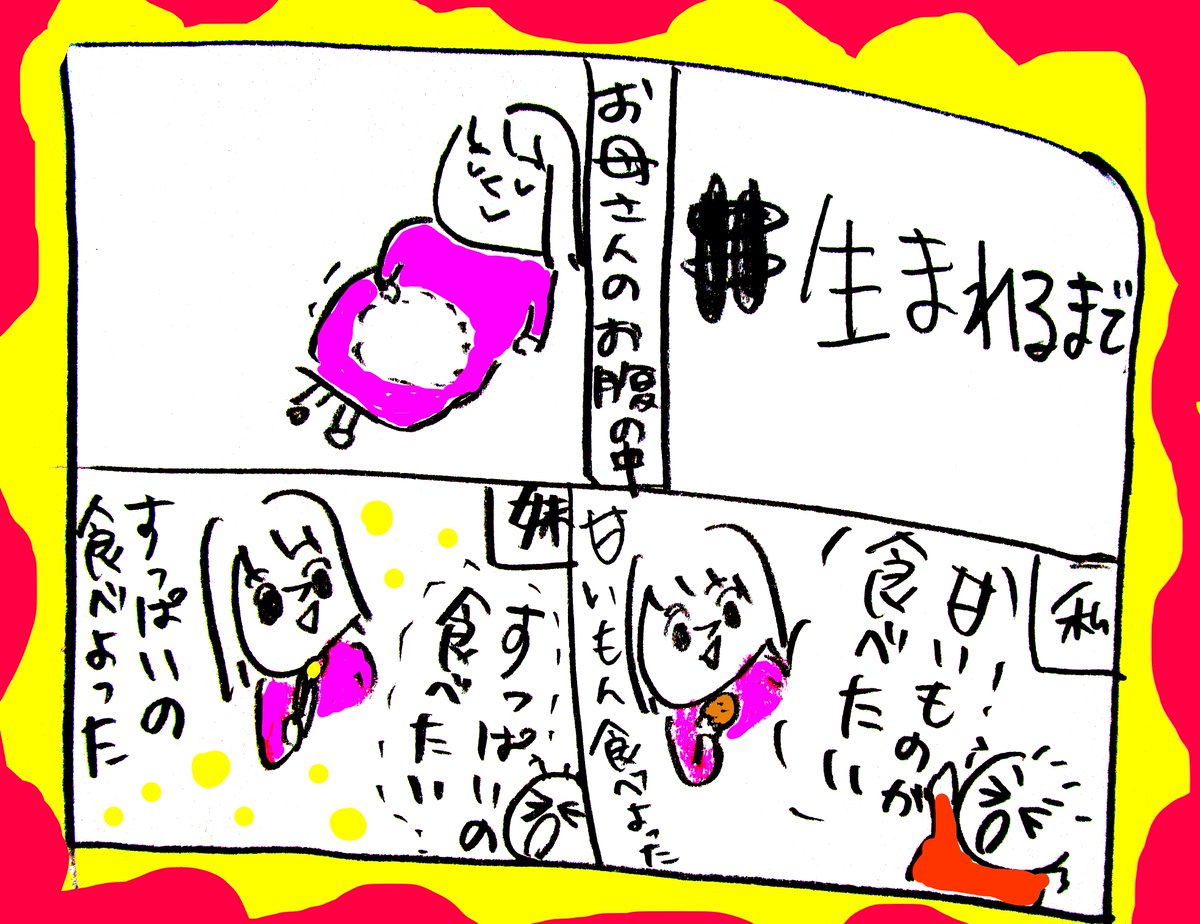 生まれるまで
お母さんのお腹の中
私
甘いものが
食べたい!
甘いもん食べよった
妹
すっぱいの
食べたい
すっぱいの
食べよった